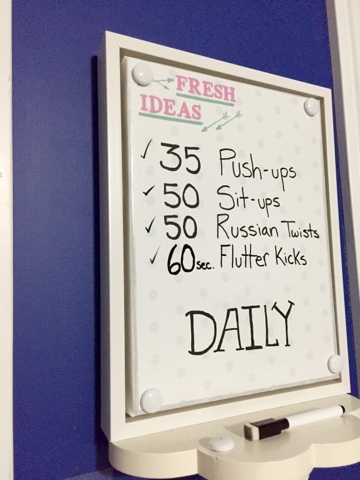 FRESH
IDEAS
✓ 35 Push-ups
✓ 50 Sit-ups
✓ 50 Russian Twists
✓ 60 sec. Flutter Kicks
DAILY